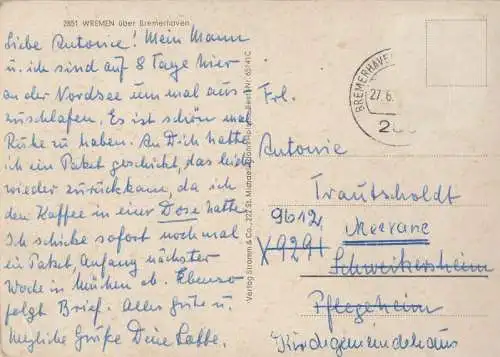 2851 WREMEN über Bremerhaven
Liebe Antonie! Mein Mann
u. ich sind auf 8 Tage hier
an der Nordsee um mal aus
zuschlafen. Es ist schön mal
Ruhe zu haben. An Dich hatte
ich ein Paket geschickt, das leider
wieder zurückkam, da ich
den Kaffee in einer Dose hatte
Ich schicke sofort nochmal
ein Paket, Anfang nächster
Woche in ab. Ebenso
folgt Brief. Alles Gute u.
herzliche Grüße Deine
Verlag Stramm & Co., 222 St. Michaelisdonn/Holst. Best.Nr. 657/41C
BREMERHAVEN
27.6.
Frl.
Antonie
Trautscholdt
9612 Meerane
X9291 Schweikersheim
Pflegeheim
Kirchgemeindehaus